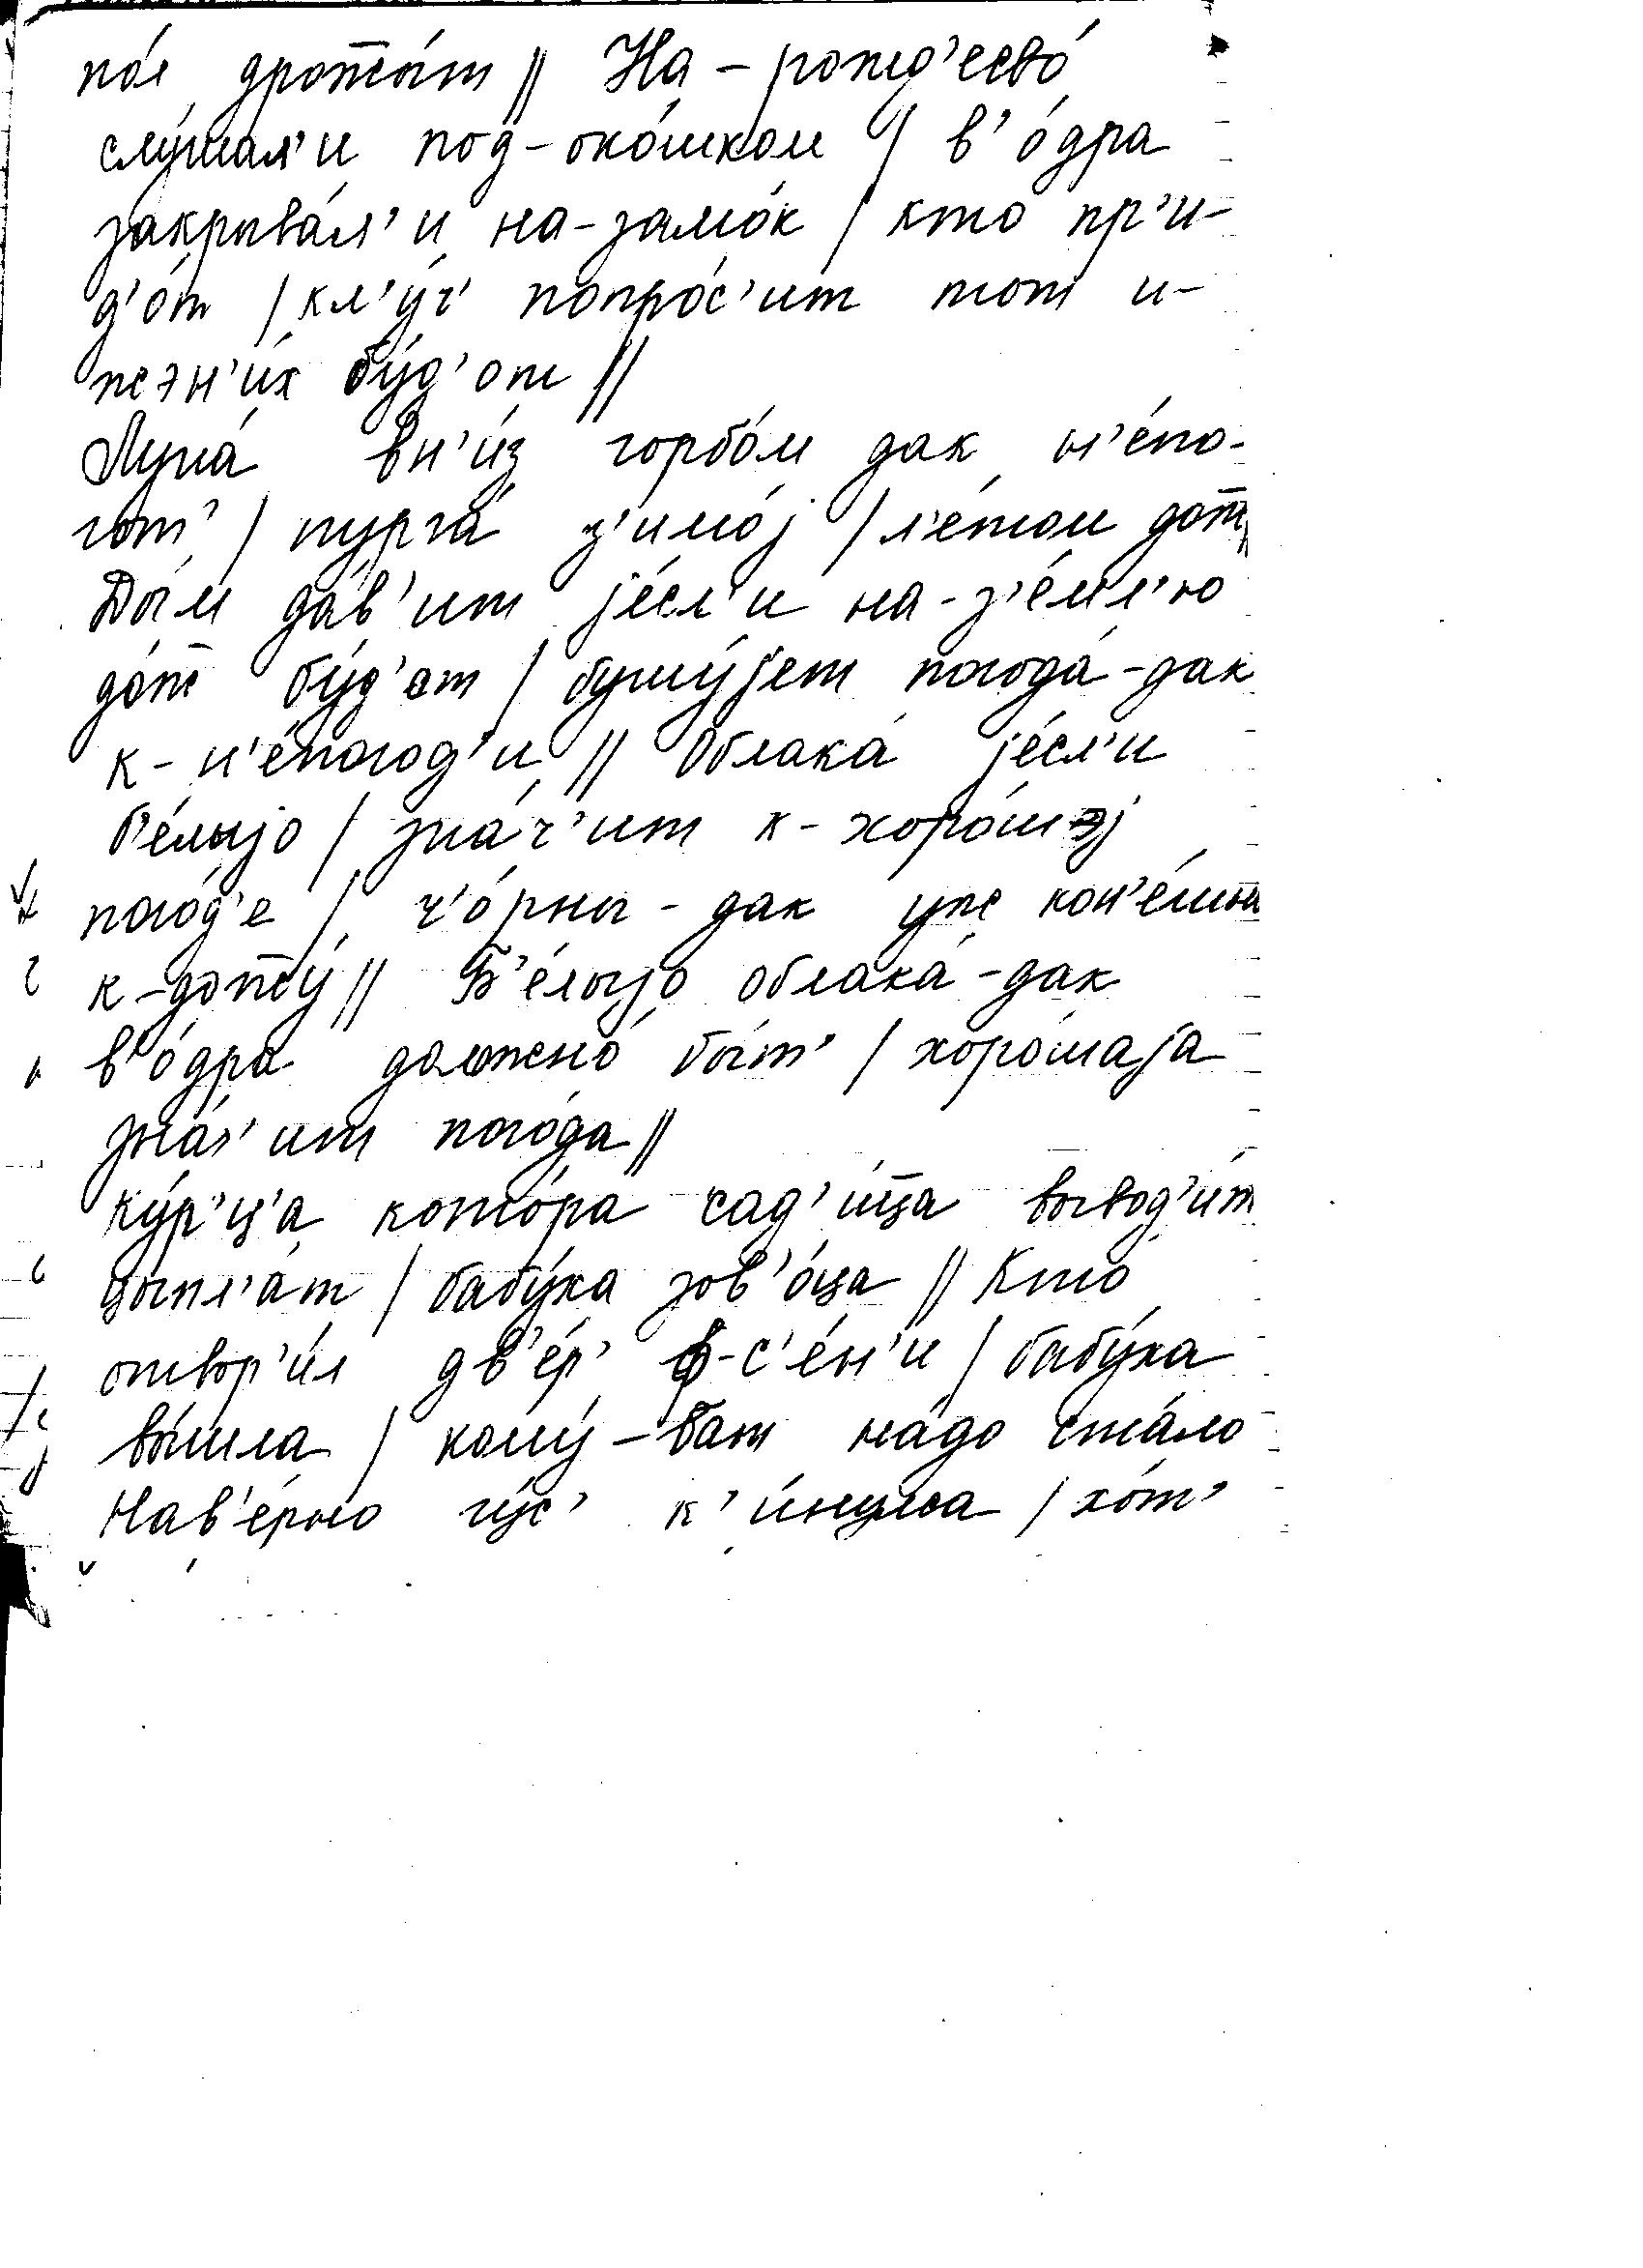 по́л дрож̅ы́т // На-рожд’ество́
слу́шал’и под-око́шком / в’о́дра
закрыва́л’и на-замо́к / кто пр’и-
д’о́т / кл’у́ч’ попро́с’ит тот и-
жэн’и́х бу́д’от //
Луна́ вн’и́з горбо́м дак н’е́по-
гот’ / пурга́ з’имо́j / л’е́том дож̅//
Ды́м да́в’ит jе́сл’и на-з’е́мл’ю
до́ж̅ бу́д’от / бушу́jет погода́-дак
к-н’е́погод’и // Облака́ jе́сл’и
б’е́лыjо / зна́ч’ит к-хоро́шэj
пого́д’е / ч’о́рны-дак уж кон’е́шна
к-дож̅у́ // Б’е́лыjо облака́-дак
в’о́дра должно́ бы́т’ / хоро́шаjа
зна́ч’ит пого́да //
Ку́р’ц’а кото́ра сад’и́ц̅а вывод’и́т
цыпл’а́т / бабу́ха зов’о́ца // Кто́
отвор’и́л дв’е́р’ ф-с’е́н’и / бабу́ха
вы́шла / кому́-бат на́до ста́ло
Нав’е́рно гу́с’ к’и́нулса / хо́т’